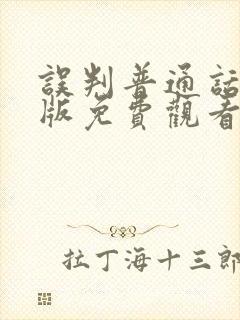 誤判普通話
版免費觀看
拉丁海十三郎